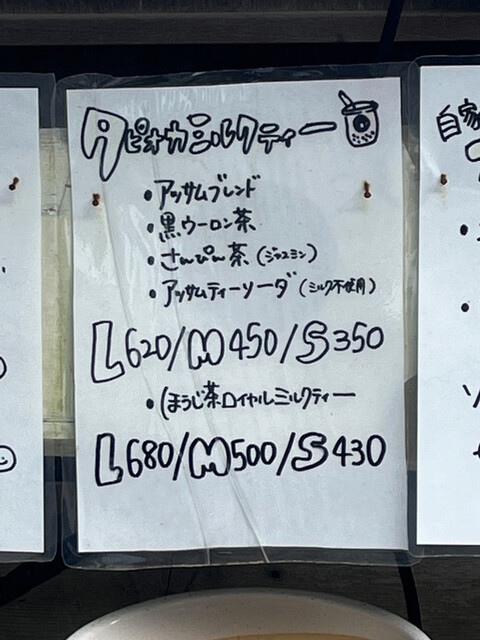 タピオカミルクティー
・アッサムブレンド
・黒ウーロン茶
・さんぴん茶(ジャスミン)
・アッサムティーソーダ(ミルク不使用)
L620/M450/S350
・ほうじ茶ロイヤルミルクティー
L680/M500/S430
自家